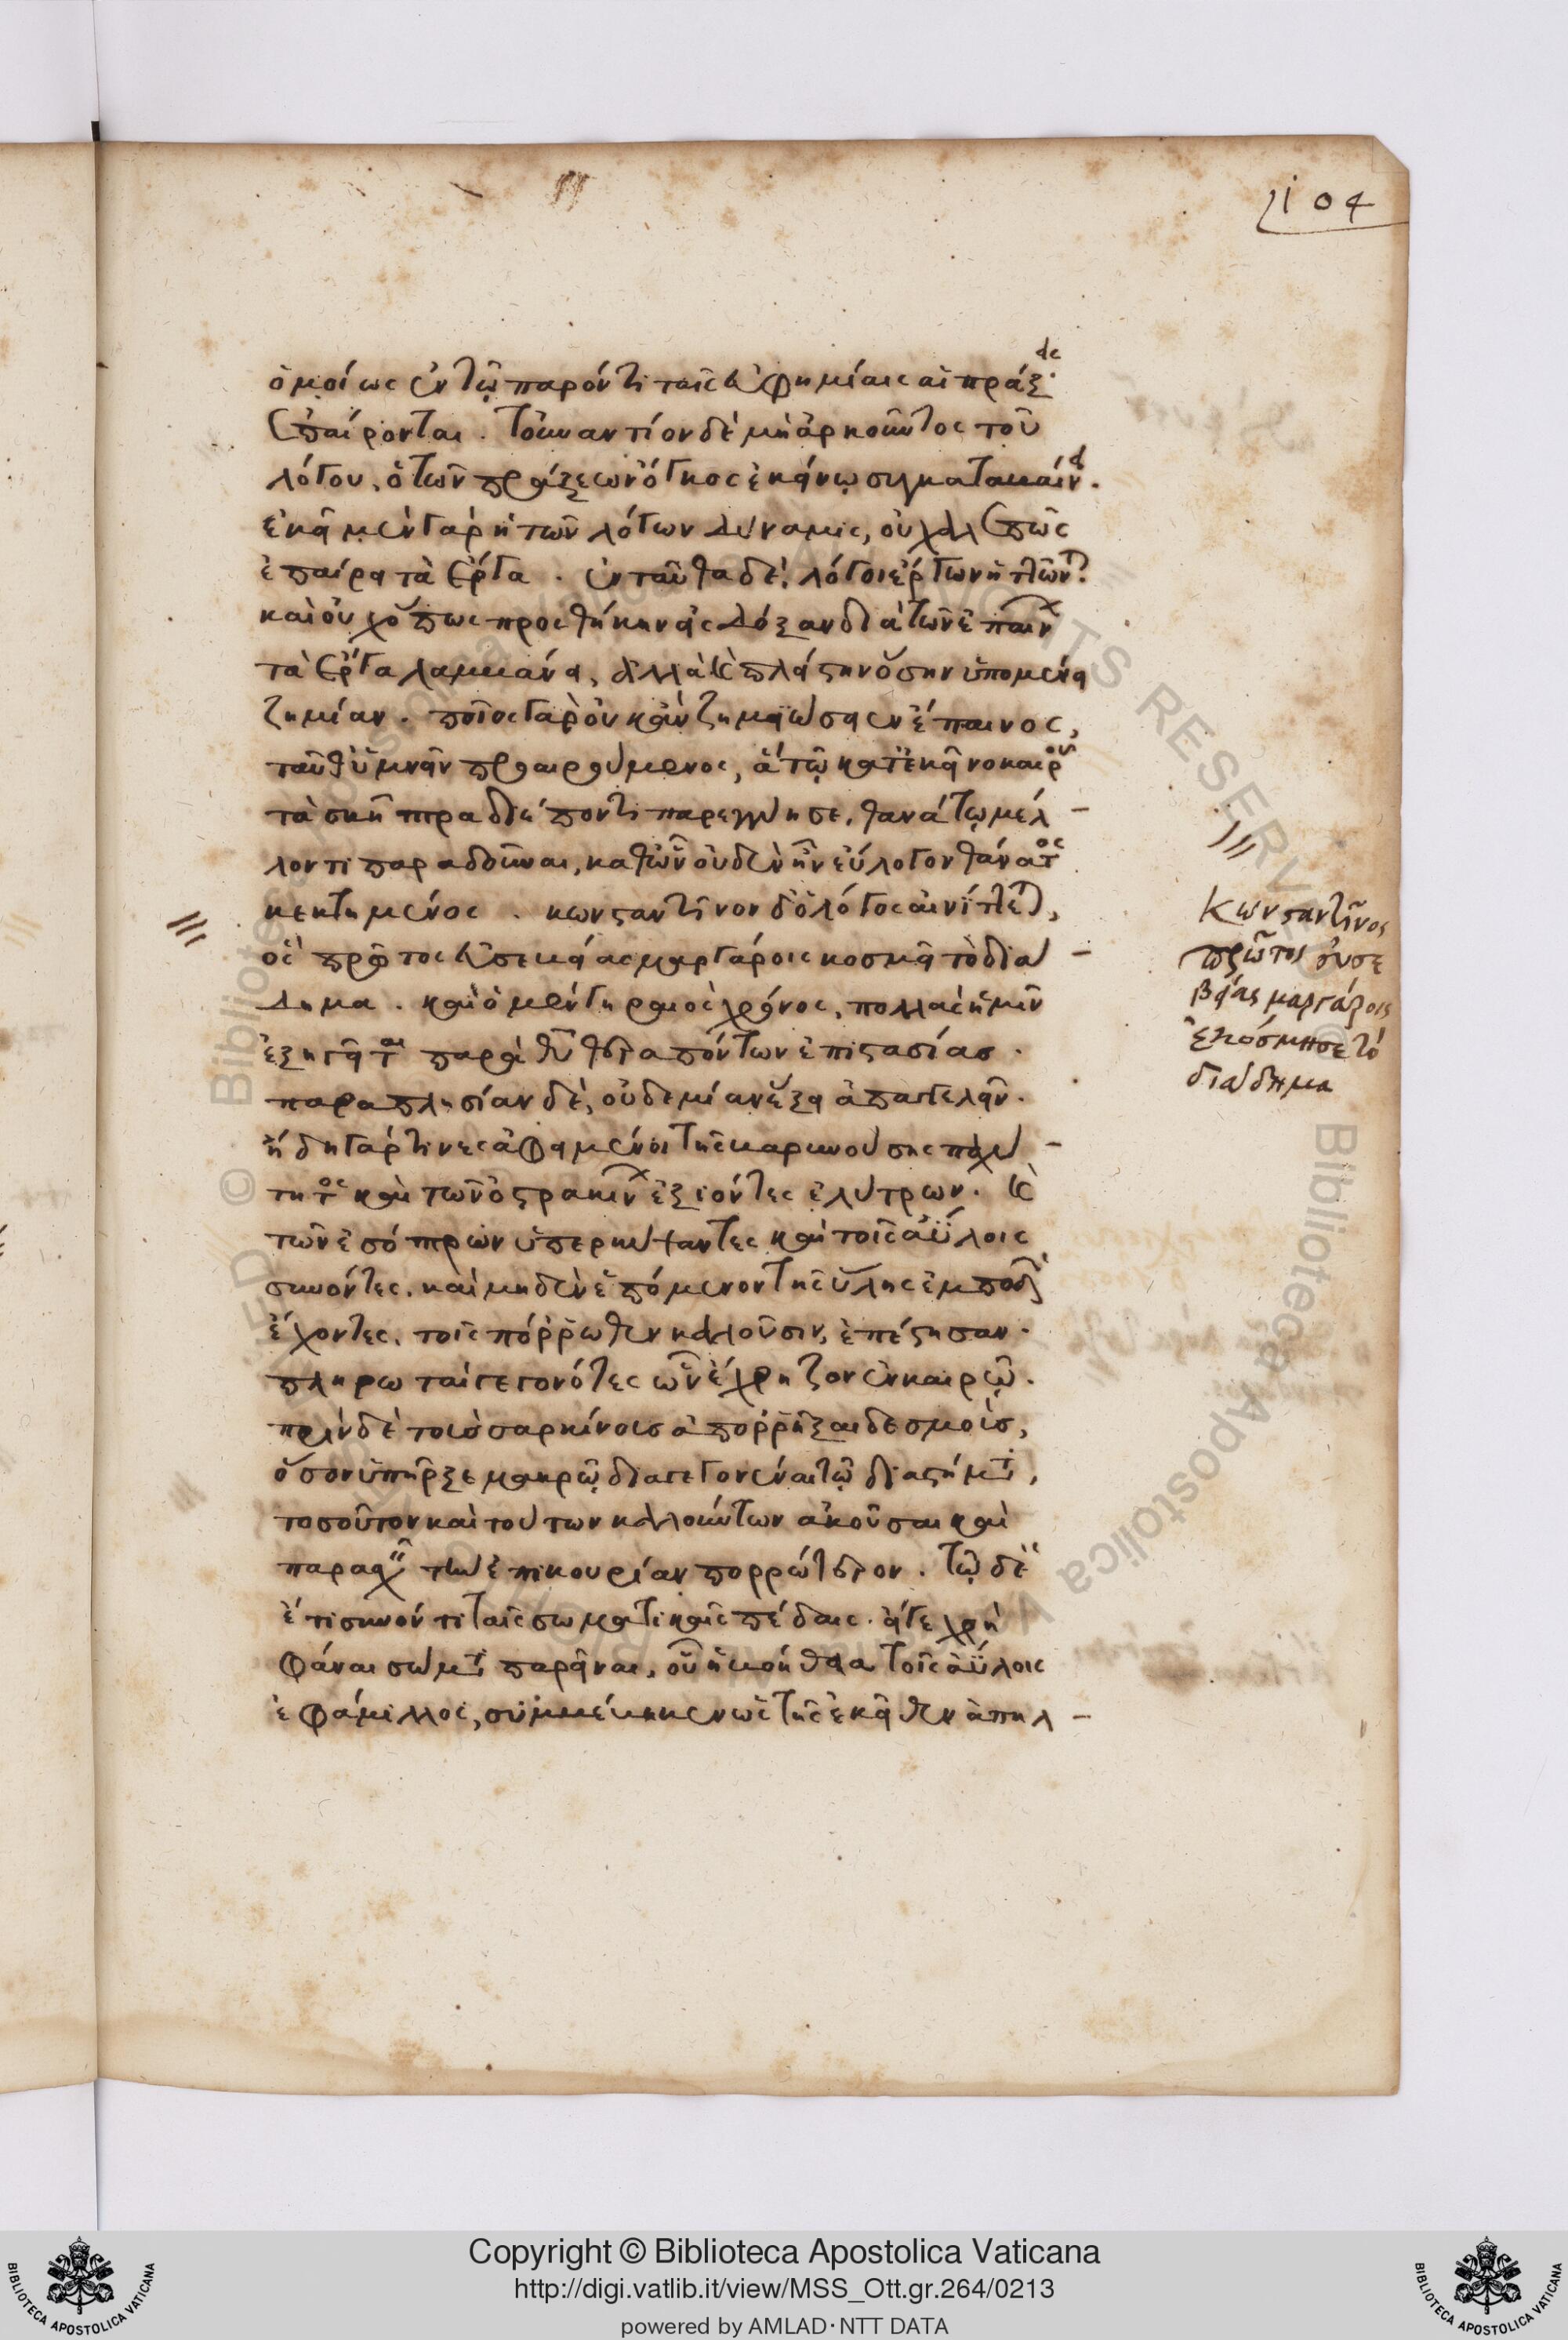 104
ὁμοίως ἐν τῷ παρόντι ταῖς εὐφημίαις αἱ πράξεις
ἐπαίρονται. τοὐναντίον δὲ μὴ ἀρκοῦντος τοῦ
λόγου, ὁ τῶν πράξεων ὄγκος ἐκείνῳ συγκαταβαίνει.
ἐκεῖ μὲν γὰρ ἡ τῶν λόγων δύναμις, οὐ χαλεπῶς
ἐπαίρει τὰ ἔργα. ἐνταῦθα δὲ, λόγοι ἔργων ἡττῶνται.
καὶ οὐχ ὅπως προσθήκην εἰς δόξαν διὰ τῶν ἐπαίνων
τὰ ἔργα λαμβάνει, ἀλλὰ καὶ πλείστην ὅσην ὑπομένει
ζημίαν. ποῖος γὰρ οὐκ ἂν ζημιώσειεν ἔπαινος,
ταῦθ' ὑμνεῖν προαιρούμενος, ἃ τῷ κατ' ἐκεῖνο καιροῦ
τὰ σκῆπτρα διέποντι παρεγγύησε, θανάτῳ μέλ-
λοντι παραδοῦναι, καθ' ὧν οὐδὲν ἦν εὔλογον θάνατος
κεκτημένος. κωνσταντῖνον δ' ὁ λόγος αἰνίττεται,
ὃς πρῶτος εὐσεβείας μαργάροις κοσμεῖ τὸ διά-
δημα. καὶ ὁ μὲν γηραιὸς χρόνος, πολλὰς ἡμῖν
ἐξηγεῖται παρὰ θεοῦ θεραπόντων ἐπιστασίας.
παραπλησίαν δὲ, οὐδεμίαν ἕξει ἀπαγγέλειν.
ἤδη γάρ τινες ἀφειμένοι τῆς βαρυνούσης παχύ-
τητος καὶ τῶν ὀστρακίνων ἐξιόντες ἐλύτρων. καὶ
τῶν ἐσόπτρων ὑπερκύψαντες καὶ τοῖς ἀΰλοις
συνόντες. καὶ μηδὲν ἑπόμενον τῆς ὕλης ἐμπόδιον
ἔχοντες, τοῖς πόρρωθεν καλοῦσιν, ἐπέστησαν.
πληρωταὶ γεγονότες ὧν ἔχρηζον ἐν καιρῷ.
πρὶν δὲ τοὺς σαρκίνους ἀπορρῆξαι δεσμοὺς,
ὅσον ὑπῆρξε μακρῷ διαγεγονέναι τῷ διαστήματι,
τοσοῦτον καὶ τούτων καλούντων ἀκοῦσαι καὶ
παρασχεῖν τὴν ἐπικουρίαν πορρώτερον. τῷ δὲ
ἔτι συνόντι ταῖς σωματικαῖς πέδαις. εἴγε χρὴ
φάναι σώματι παρεῖναι, οὗ ἡ βοήθεια τοῖς ἀΰλοις
ἐφάμιλλος, συμβέβηκεν ὡς τῆς ἐκεῖθεν ἀπηλ-
Κωνσταντῖνος
πρῶτος εὐσε
βείας μαργάροις
ἐκόσμησε τὸ
διάδημα
Copyright © Biblioteca Apostolica Vaticana
http://digi.vatlib.it/view/MSS_Ott.gr.264/0213
powered by AMLAD·NTT DATA
BIBLIOTECA APOSTOLICA VATICANA
BIBLIOTECA APOSTOLICA VATICANA